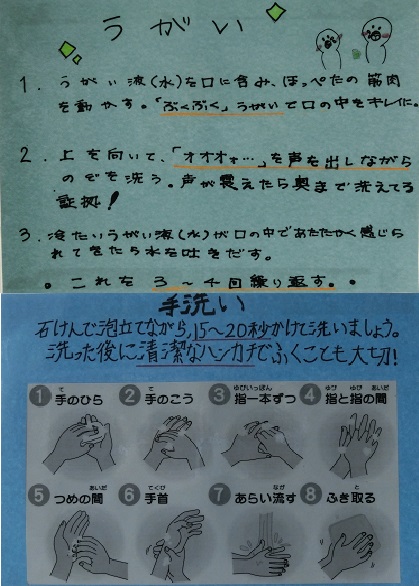 うがい
1. うがい液(水)を口に含み、ほっぺたの筋肉
を動かす。「ぶくぶく」うがいで口の中をキレイに。
2. 上を向いて、「オオオォ…」を声を出しながら
のどを洗う。声が震えたら奥まで洗えてる
証拠!
3. 冷たいうがい液(水)が口の中であたたかく感じら
れてきたら水を吐きだす。
。これを3〜4回繰り返す。。
手洗い
石けんで泡立てながら、15〜20秒かけて洗いましょう。
洗った後に清潔なハンカチでふくことも大切!
1 手のひら 2 手のこう 3 指一本ずつ 4 指と指の間
5 つめの間 6 手首 7 あらい流す 8 ふき取る